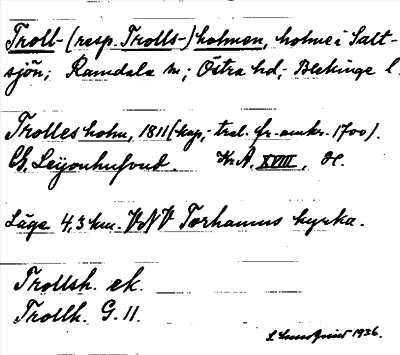 Troll- (resp. Trolls-) holmen, holme i Salt-
sjön; Ramdala sn; Östra hd; Blekinge l.
Trolles holm, 1811 (kop; trol. fr. omkr. 1700).
Ch. Leijonhufvud. Kr. A. XVIII,
Läge 4,3 km. VNV Torhamns kyrka.
Trollsh. ek.
Trollh. G. 11.
1936.